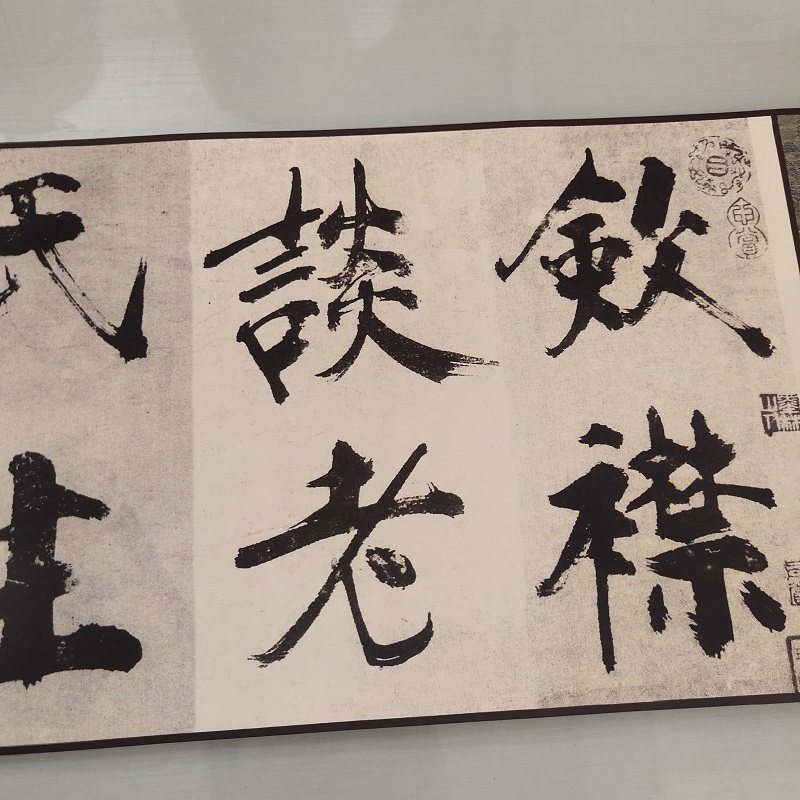 斂襟
談老
氏